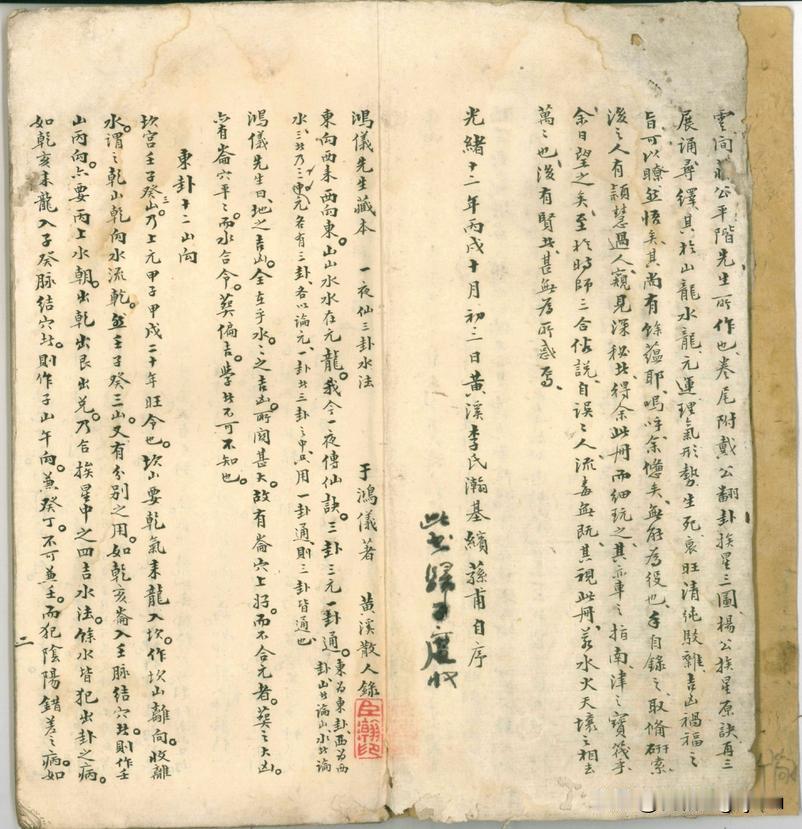 雲间蔣公平階先生所作也、卷尾附戴公翻卦挨星三圖楊公挨星原訣再三
展誦尋繹其於山龍水龍、元運理氣形勢生死衰旺清純駁雜、吉凶禍福之
旨、可以瞭然悟矣其尚有餘蘊耶、嗚呼余憊矣、無能為役也、手自錄之、取脩研索
後之人有穎慧過人、窺見深秘者、得余此冊而細玩之、其亦車之指南、津之寶筏乎
余日望之矣、至於時師三合俗說、自误之人流毒無既、其視此冊、若水火天壤之相去
萬之也、後有賢者、甚無為所惑焉、
光緒十二年丙戌十月初三日黃溪李氏瀚基纘蓀甫自序
此書歸子度收
鴻儀先生藏本　一夜仙三卦水法　于鴻儀著　黃溪散人錄
東向西来西向東。山山水水在元龍。我今一夜傳仙訣。三卦三元一卦通。東为東卦、西为西
卦、山者論山、水者論
水、三者乃三元各有三卦、各以論元、一卦者三卦之中、只用一卦通則三卦皆通也
鴻儀先生曰、地之吉凶。全在乎水。水之吉凶。所関甚大。故有崙穴上好。而不合元者。葬之大凶。
亦有崙穴平平。而水合令。葬偏吉。學者不可不知也。
東卦十二山向
坎宫壬子癸三山。乃上元甲子甲戌二十年旺令也。坎山要乾氣来龍入坎。作坎山離向。收離
水。謂之乾山乾向水流乾。然壬子癸三山。又有分别之用。如乾亥崙入壬脉結穴者。則作壬
山丙向。亦要丙上水朝。出乾出艮出兑。乃合挨星中之四吉水法。餘水皆犯出卦之病。
如乾亥来龍入子癸脉結穴者。則作子山午向。兼癸丁。不可兼壬。而犯陰陽錯差之病。如
二